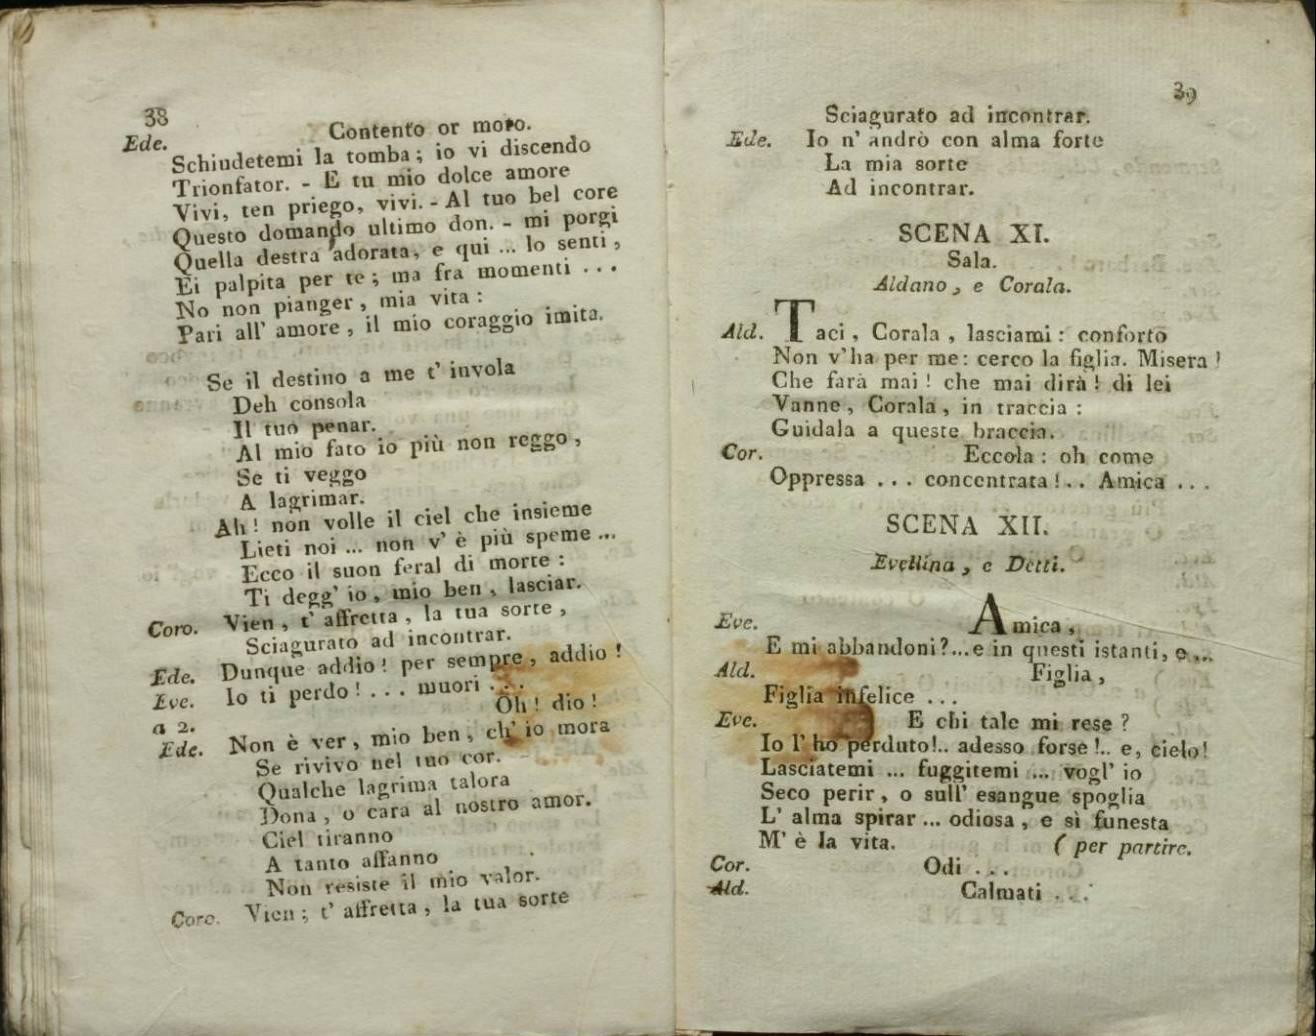 38
Contento or moro.
Ede.
Schiudetemi la tomba; io vi discendo
Trionfator. - E tu mio dolce amore
Vivi, ten priego, vivi. - Al tuo bel core
Questo domando ultimo don. - mi porgi
Quella destra adorata, e qui ... lo senti,
Ei palpita per te; ma fra momenti ...
No non pianger, mia vita:
Pari all' amore, il mio coraggio imita.
Se il destino a me t' invola
Deh consola
Il tuo penar.
Al mio fato io più non reggo,
Se ti veggo
A lagrimar.
Ah! non volle il ciel che insieme
Lieti noi ... non v' è più speme ...
Ecco il suon feral di morte:
Ti degg' io, mio ben, lasciar.
Coro. Vien, t' affretta, la tua sorte,
Sciagurato ad incontrar.
Ede. Dunque addio! per sempre, addio!
Eve. Io ti perdo! ... muori ...
a 2. Oh! dio!
Ede. Non è ver, mio ben, ch' io mora
Se rivivo nel tuo cor.
Qualche lagrima talora
Dona, o cara al nostro amor.
Ciel tiranno
A tanto affanno
Non resiste il mio valor.
Coro. Vien; t' affretta, la tua sorte
39
Sciagurato ad incontrar.
Ede. Io n' andrò con alma forte
La mia sorte
Ad incontrar.
SCENA XI.
Sala.
Aldano, e Corala.
Ald. Taci, Corala, lasciami: conforto
Non v'ha per me: cerco la figlia. Misera!
Che farà mai! che mai dirà! di lei
Vanne, Corala, in traccia:
Guidala a queste braccia.
Cor. Eccola: oh come
Oppressa ... concentrata!.. Amica ...
SCENA XII.
Evellina, e Detti.
Eve. Amica,
E mi abbandoni?...e in questi istanti, e ...
Ald. Figlia,
Figlia infelice ...
Eve. E chi tale mi rese?
Io l' ho perduto!.. adesso forse!.. e, cielo!
Lasciatemi ... fuggitemi ... vogl' io
Seco perir, o sull' esangue spoglia
L' alma spirar ... odiosa, e sì funesta
M' è la vita. ( per partire.
Cor. Odi ...
Ald. Calmati ...